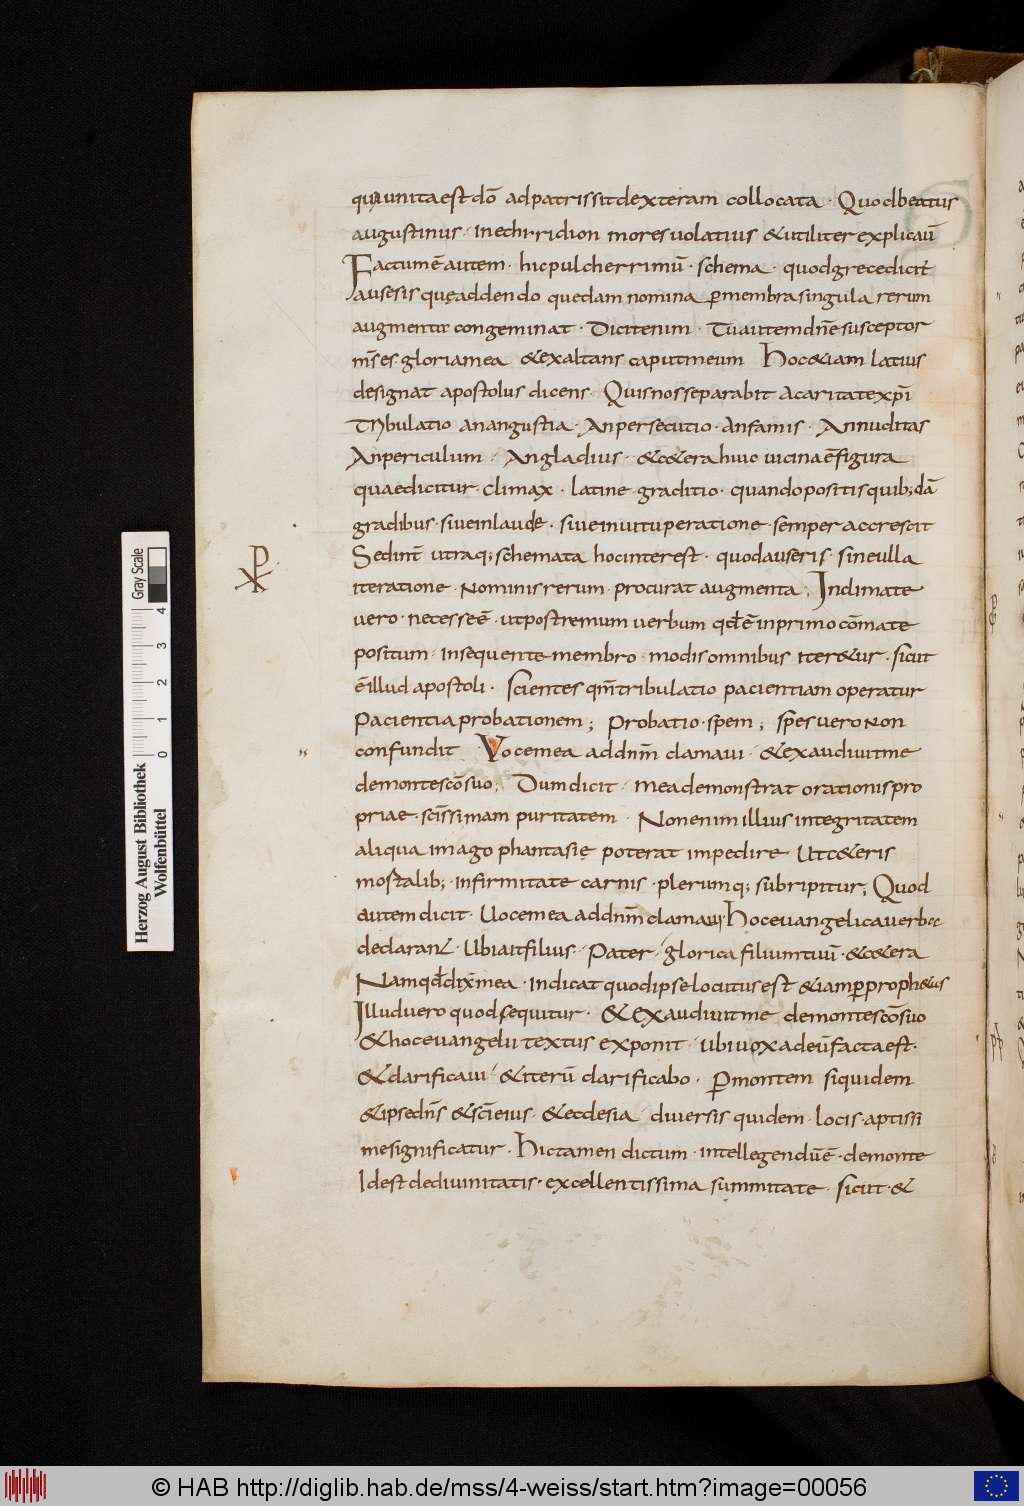 quia unita est dō ad patris sit dexteram collocata · Quod beatus
augustinus · in echirridion mores uolatius & utiliter explicau̅
Factum ē autem · hic pulcherrimū · schema · quod grece dicit̅
ausesis que addendo quedam nomina ꝑ membra singula rerum
augmenta congeminat · Dicit enim · Tu autem dn̅e susceptor
m̅s es · gloria mea & exaltans caput meum Hoc &iam latius
designat apostolus dicens · Quis nos separabit a caritate xp̅i
Tribulatio an angustia · An persecutio · an famis · An nuditas
An periculum · An gladius · &c&era huic uicina ē figura
quae dicitur · climax · latine · graditio · quando positis quib; dā
gradibus · siue in laude · siue in uituperatione · semper accrescit
Sed int̅ utraq; schemata hoc interest · quod auseris · sine ulla
iteratione · Nominis rerum · procurat augmenta · In climate
uero · necesse ē · ut postremum uerbum qđ ē in primo cōmate
positum · in sequente membro · modis omnibus iter&ur · sicut
ē illud apostoli · scientes qm̅ tribulatio pacientiam operatur
Pacientia probationem ; Probatio · spem ; spes uero non
confundit Voce mea ad dnm̅ clamaui · & exaudiuit me
de monte sc̅o suo ; Dum dicit · mea demonstrat orationis pro
priae · sc̅issimam puritatem · Non enim illius integritatem
aliqua imago phantasię poterat impedire Ut c&eris
mostalib; · infirmitate carnis · plerumq; subripitur ; Quod
autem dicit · Uoce mea ad dnm̅ clamaui · Hoc euangelica uerba
declarant · Ubi ait filius · Pater · glorica filium tuū · &c&era
Nam qđ dix̅ mea · indicat quod ipse locutus est &iam ꝑ proph&as
Illud uero quod sequitur · & Exaudiuit me de monte sc̅o suo
& hoc euangelii textus exponit · ubi uox ad eū facta est ·
& clarificaui · & iterū clarificabo · ꝑ montem siquidem
& ipse dn̅s & sc̅i eius · & ecclesia diuersis quidem · locis · aptissi
me significatur · Hic tamen dictum · intellegendū ē · de monte
Id est de diuinitatis · excellentissima summitate · sicut · &
Gray Scale
0 1 2 3 4
Herzog August Bibliothek
Wolfenbüttel
© HAB http://diglib.hab.de/mss/4-weiss/start.htm?image=00056